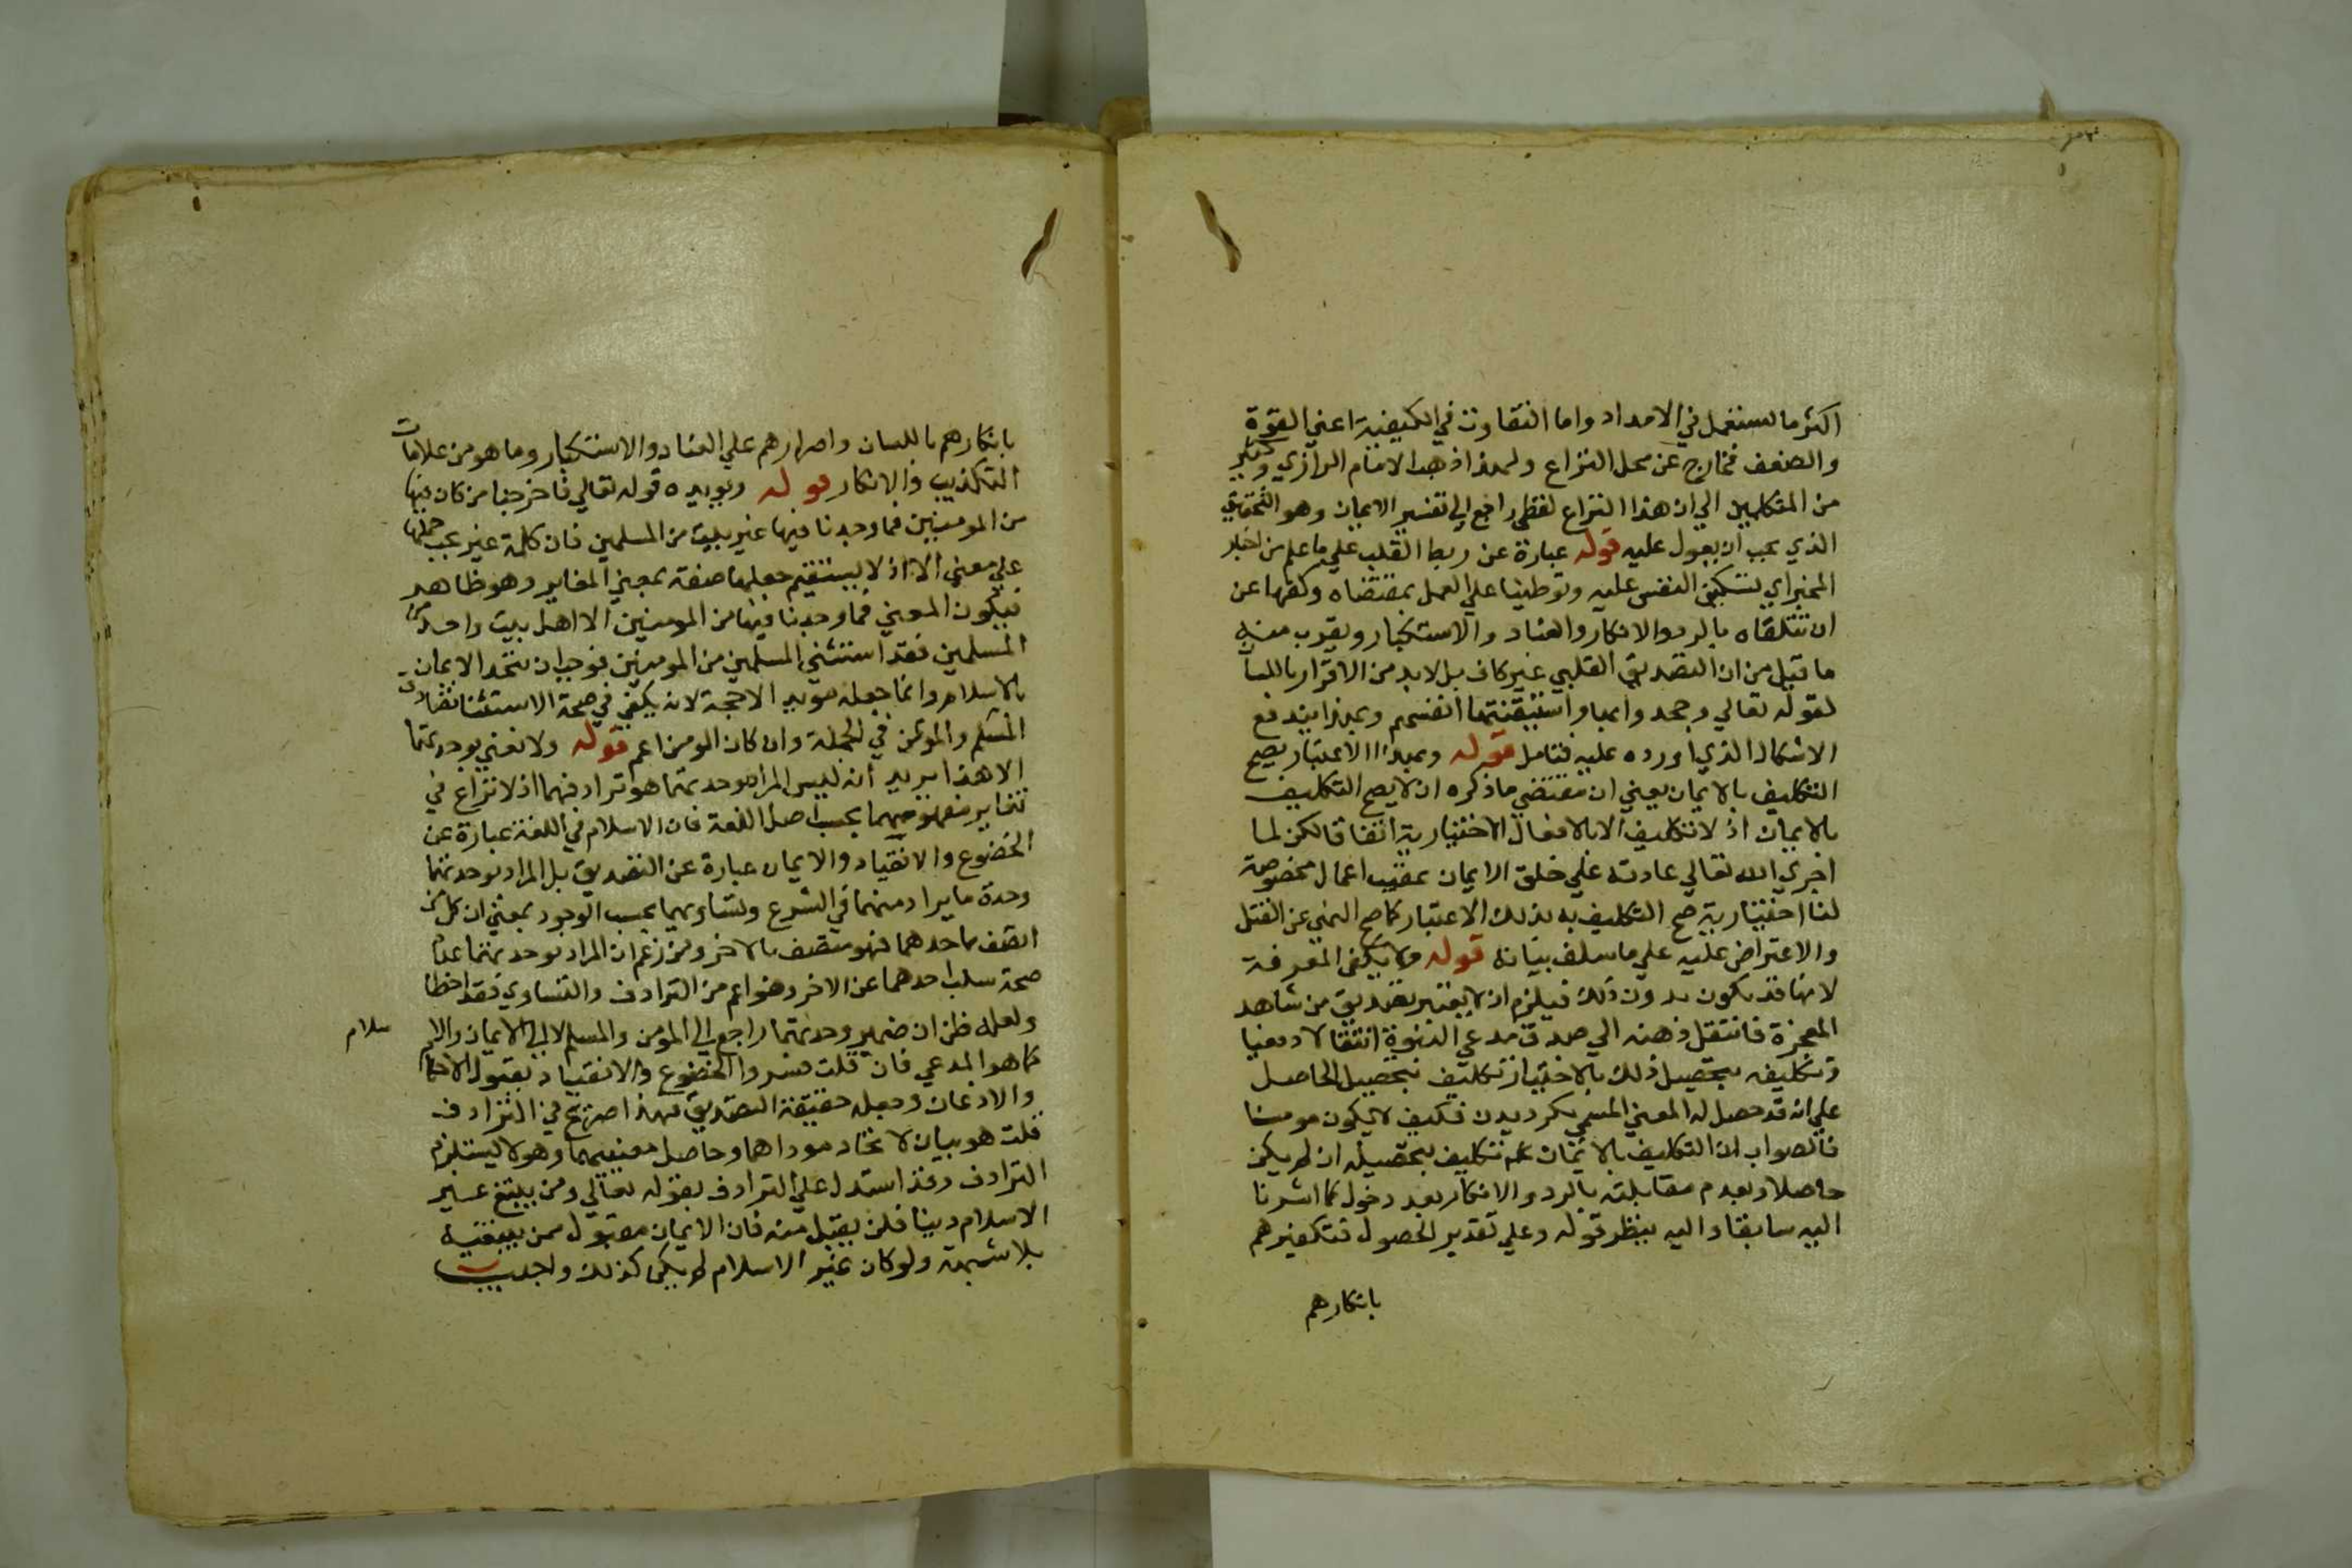 اكثر ما يستعمل في الامداد واما التفاوت في الكيفية اعني القوة
والضعف فخارج عن محل النزاع ولهذا ذهب الامام الرازي وكثير
من المتكلمين الي ان هذا النزاع لفظي راجع الي تفسير الايمان وهو التحقيق
الذي يجب ان يعول عليه قوله عبارة عن ربط القلب علي ما علم من اخبار
المخبر اي تسكين النفس عليه وتوطينا علي العمل بمقتضاه وكفها عن
ان تتلقاه بالرد والانكار والعناد والاستكبار ويقرب منه
ما قيل من ان التصديق القلبي غير كاف بل لابد من الاقرار باللسا
لقوله تعالي وجحدوا بها واستيقنتها انفسهم وبهذا يندفع
الاشكال الذي اورده عليه فتامل قوله وبهذا الاعتبار يصح
التكليف بالايمان يعني ان مقتضي ما ذكره ان لا يصح التكليف
بالايمان اذ لا تكليف الا بالافعال الاختيارية اتفاقا لكن لما
اجري الله تعالي عادته علي خلق الايمان عقيب اعمال مخصوصة
لنا اختيارية صح التكليف به بذلك الاعتبار كما صح النهي عن القتل
والاعتراض عليه علي ما سلف بيانه قوله ولا يكفي المعرفة
لانها قد يكون بدون ذلك فيلزم ان لا يعتبر تصديق من شاهد
المعجزة فانتقل ذهنه الي صدق مدعي النبوة انتقالا دفعيا
وتكليفه بتحصيل ذلك بالاختيار تكليف بتحصيل الحاصل
علي انه قد حصل له المعني المسمي بكرديدن فكيف لا يكون مومنا
فالصواب ان التكليف بالايمان تكليف بتحصيله ان لم يكن
حاصلا وبعدم مقابلته بالرد والانكار بعد دخول كما اشرنا
اليه سابقا واليه ينظر قوله وعلي تقدير الحصول فتكفيرهم
بانكارهم
بانكارهم باللسان واصرارهم علي العناد والاستكبار وما هو من علامات
التكذيب والانكار قوله ويويده قوله تعالي فاخرجنا من كان فيها
من المومنين فما وجدنا فيها غير بيت من المسلمين فان كلمة غير يجب حملها
علي معني الا اذ لا يستقيم جعلها صفة بمعني المغاير وهو ظاهر
فيكون المعني فما وجدنا فيها من المومنين الا اهل بيت واحد من
المسلمين فقد استثني المسلمين من المومنين فوجب ان يتحد الايمان
بالاسلام وانما جعله مويدا لا حجة لانه يكفي في صحة الاستثنا تصادق
المسلم والمومن في الجملة وان كان المومن اعم قوله ولا نعني بوحدتهما
الا هذا يريد انه ليس المراد بوحدتهما هو ترادفهما اذ لا نزاع في
تغاير مفهوميهما بحسب اصل اللغة فان الاسلام في اللغة عبارة عن
الخضوع والانقياد والايمان عبارة عن التصديق بل المراد بوحدتهما
وحدة ما يراد منهما في الشرع وتساويهما بحسب الوجود بمعني ان كل من
اتصف باحدهما فهو متصف بالاخر ومن زعم ان المراد بوحدتهما عدم
صحة سلب احدهما عن الاخر وهو اعم من الترادف والتساوي فقد اخطا
ولعله ظن ان ضمير وحدتهما راجع الي المومن والمسلم لا الي الايمان والا
سلام
كما هو المدعي فان قلت فسروا الخضوع والانقياد بقبول الاحكام
والاذعان وجعله حقيقة التصديق فهذا صريح في الترادف
قلت هو بيان لاتحاد موداهما وحاصل معنييهما وهو لا يستلزم
الترادف وقد استدل علي الترادف بقوله تعالي ومن يبتغ غير
الاسلام دينا فلن يقبل منه فان الايمان مقبول ممن يبتغيه
بلا شبهة ولو كان غير الاسلام لم يكن كذلك واجيب